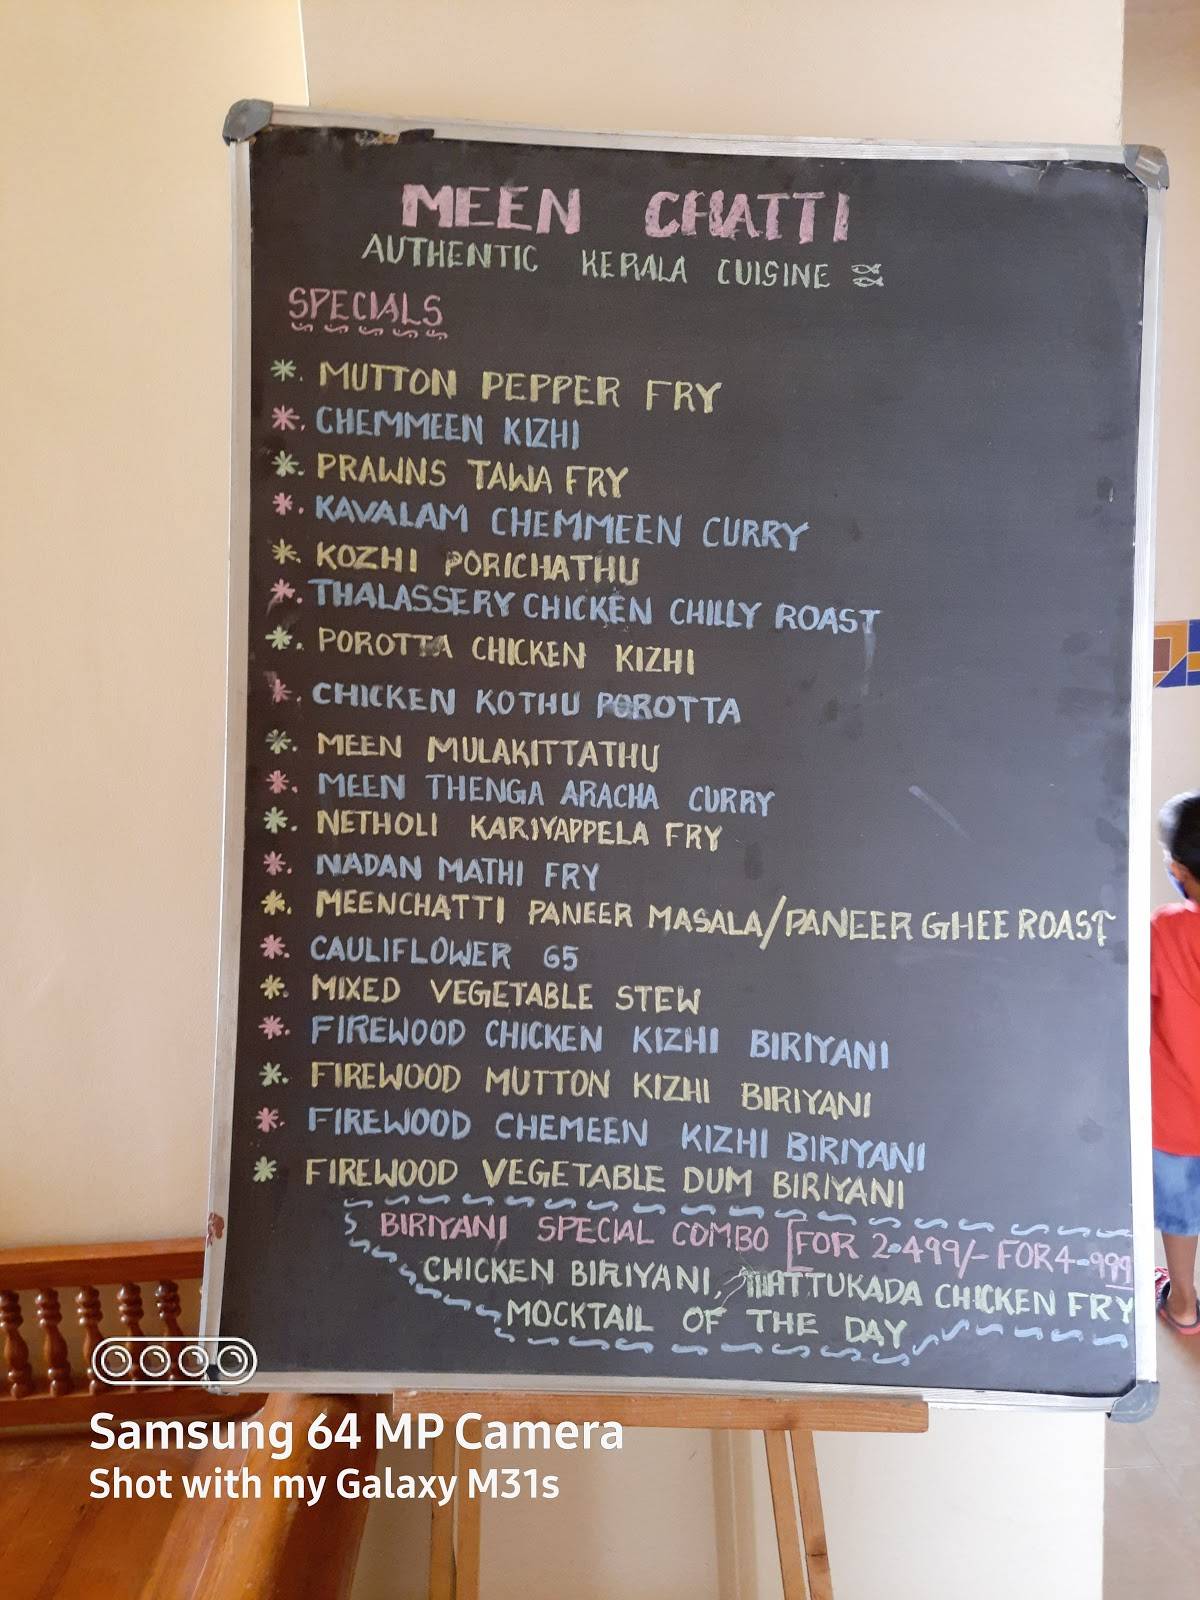 MEEN CHATTI
AUTHENTIC KERALA CUISINE
SPECIALS
*. MUTTON PEPPER FRY
*. CHEMMEEN KIZHI
*. PRAWNS TAWA FRY
*. KAVALAM CHEMMEEN CURRY
*. KOZHI PORICHATHU
*. THALASSERY CHICKEN CHILLY ROAST
*. POROTTA CHICKEN KIZHI
*. CHICKEN KOTHU POROTTA
*. MEEN MULAKITTATHU
*. MEEN THENGA ARACHA CURRY
*. NETHOLI KARIYAPPELA FRY
*. NADAN MATHI FRY
*. MEENCHATTI PANEER MASALA/PANEER GHEE ROAST
*. CAULIFLOWER 65
*. MIXED VEGETABLE STEW
*. FIREWOOD CHICKEN KIZHI BIRIYANI
*. FIREWOOD MUTTON KIZHI BIRIYANI
*. FIREWOOD CHEMEEN KIZHI BIRIYANI
* FIREWOOD VEGETABLE DUM BIRIYANI
BIRIYANI SPECIAL COMBO [FOR 2-499/- FOR 4-999
CHICKEN BIRIYANI, THATTUKADA CHICKEN FRY
MOCKTAIL OF THE DAY
Samsung 64 MP Camera
Shot with my Galaxy M31s